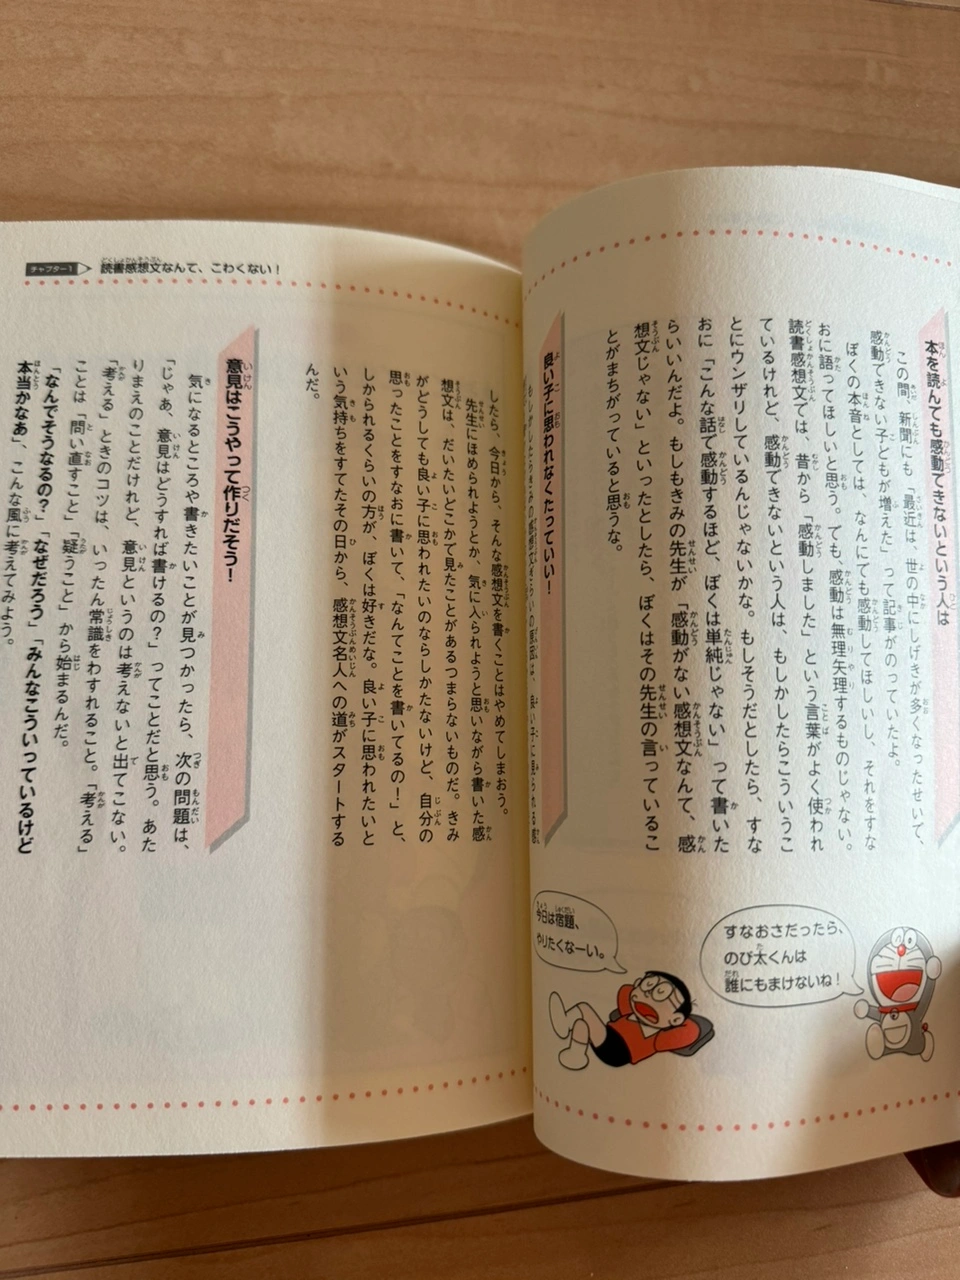 本を読んでも感動できないという人は
この間、新聞にも「最近は、世の中にしげきが多くなったせいで、
感動できない子どもが増えた」って記事がのっていたよ。
ぼくの本音としては、なんにでも感動してほしいし、それをすな
おに語ってほしいと思う。でも、感動は無理矢理するものじゃない。
読書感想文では、昔から「感動しました」という言葉がよく使われ
ているけれど、感動できないという人は、もしかしたらこういうこ
とにウンザリしているんじゃないかな。もしそうだとしたら、すな
おに「こんな話で感動するほど、ぼくは単純じゃない」って書いた
らいいんだよ。もしもきみの先生が「感動がない感想文なんて、感
想文じゃない」といったとしたら、ぼくはその先生の言っているこ
とがまちがっていると思うな。
良い子に思われなくたっていい！
すなおさだったら、
のび太くんは
誰にもまけないね！
今日は宿題、
やりたくなーい。
チャプター1 読書感想文なんて、こわくない！
したら、今日から、そんな感想文を書くことはやめてしまおう。
先生にほめられようとか、気に入られようと思いながら書いた感
想文は、だいたいどこかで見たことがあるつまらないものだ。きみ
がどうしても良い子に思われたいのならしかたないけど、自分の
思ったことをすなおに書いて、「なんてことを書いてるの！」と、
しかられるくらいの方が、ぼくは好きだな。良い子に思われたいと
いう気持ちをすてたその日から、感想文名人への道がスタートする
んだ。
意見はこうやって作りだそう！
気になるところや書きたいことが見つかったら、次の問題は、
「じゃあ、意見はどうすれば書けるの？」ってことだと思う。あた
りまえのことだけれど、意見というのは考えないと出てこない。
「考える」ときのコツは、いったん常識をわすれること。「考える」
ことは「問い直すこと」「疑うこと」から始まるんだ。
「なんでそうなるの？」「なぜだろう」「みんなこういっているけど
本当かなあ」、こんな風に考えてみよう。